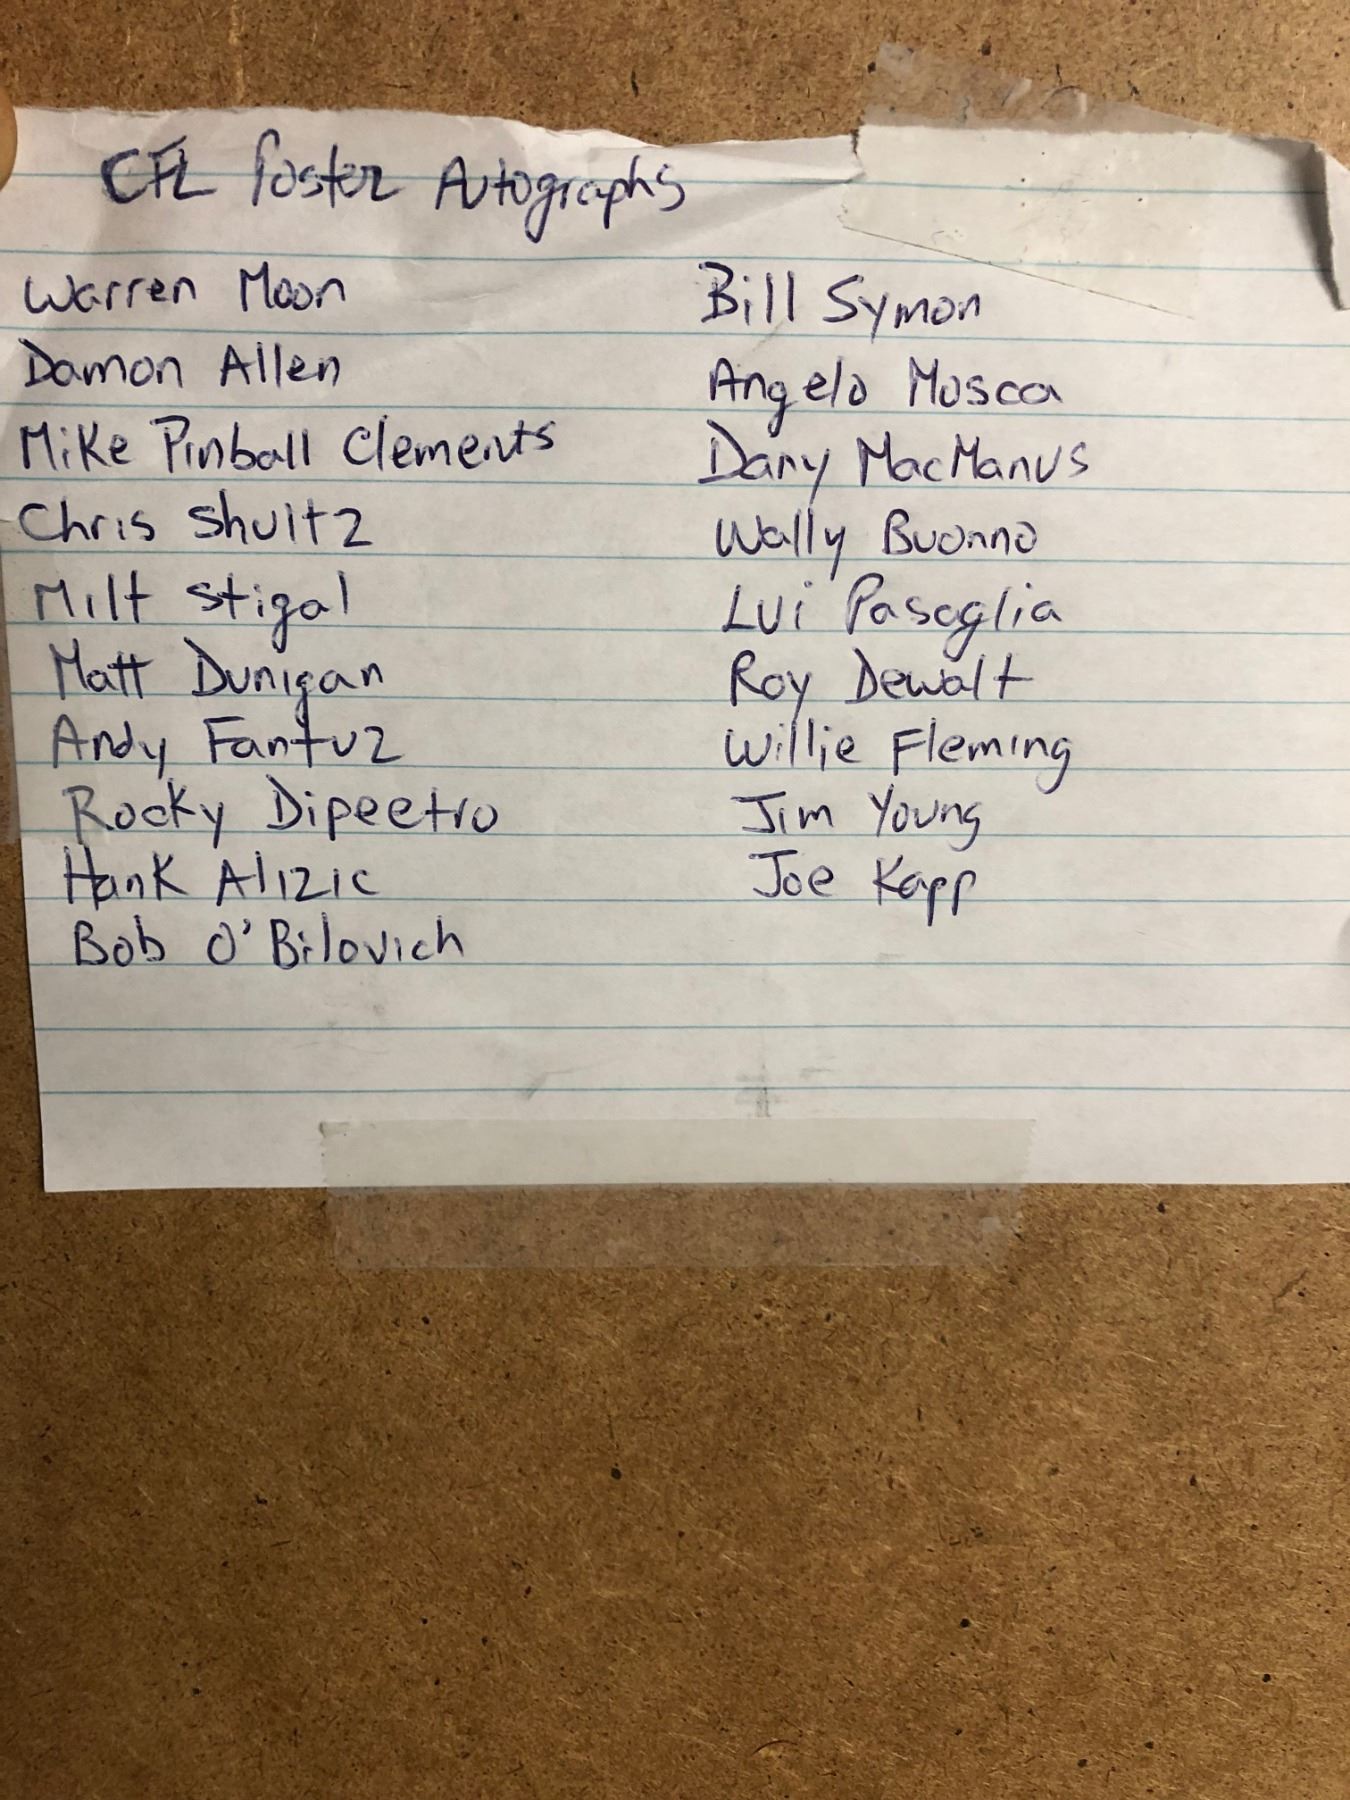 CFL Poster Autographs
Warren Moon
Damon Allen
Mike Pinball Clements
Chris Shultz
Milt Stigal
Matt Dunigan
Andy Fantuz
Rocky Dipeetro
Hank Alizic
Bob O'Bilovich
Bill Symon
Angelo Mosca
Dany MacManus
Wally Buonno
Lui Pasaglia
Roy Dewalt
Willie Fleming
Jim Young
Joe Kapp